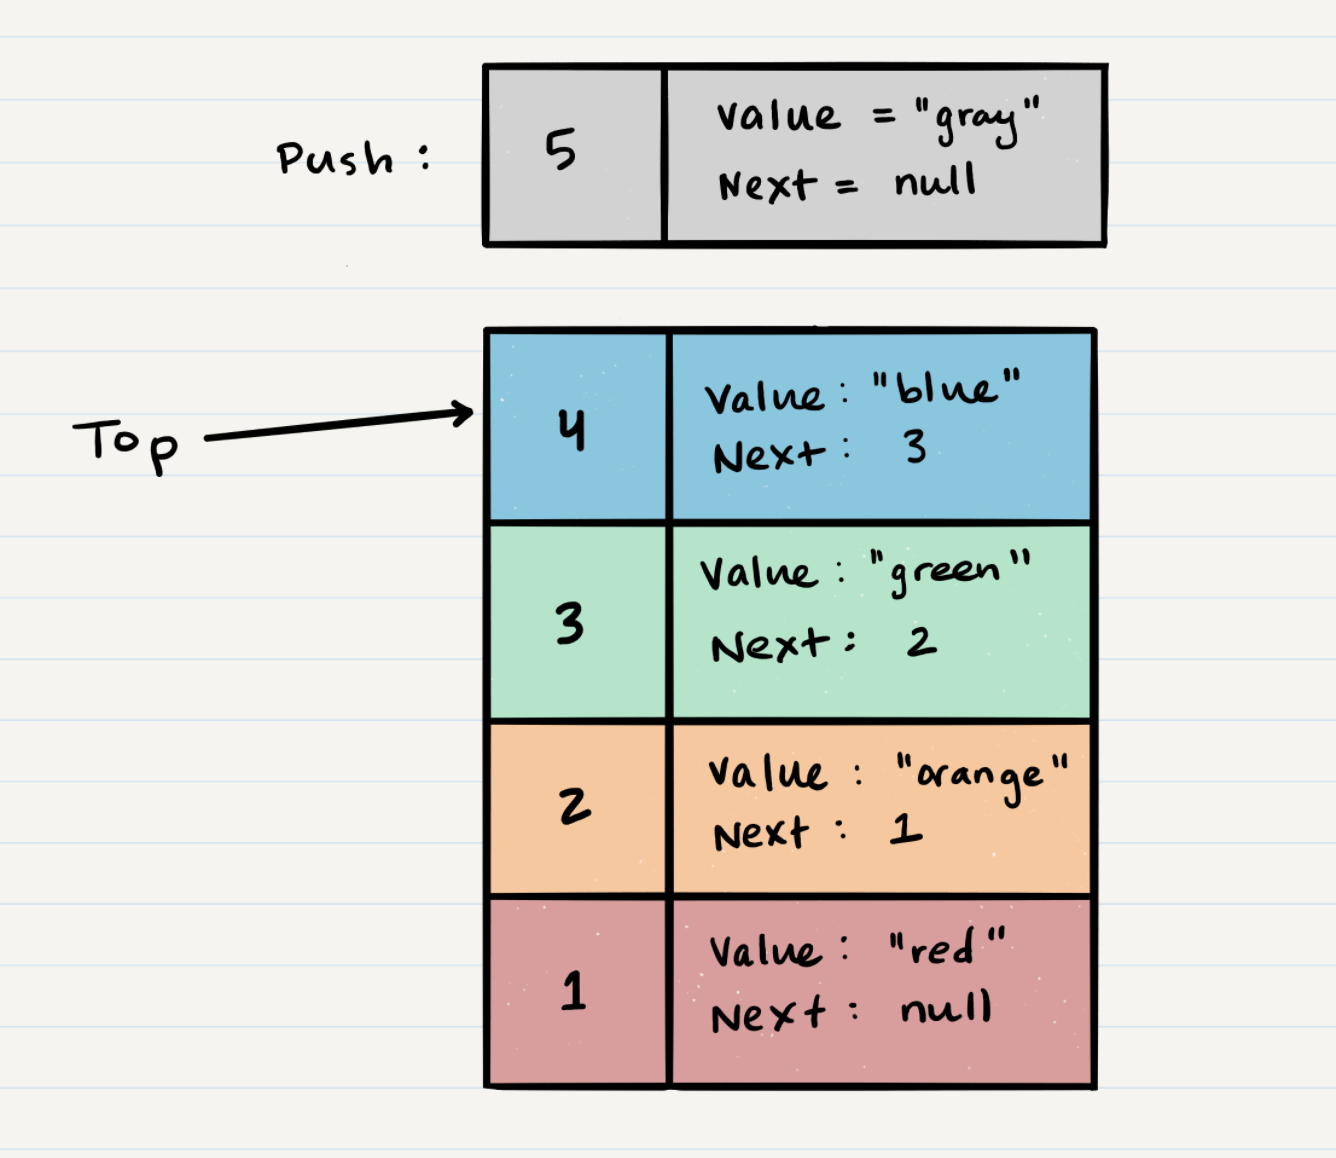 Push :
5
Value = "gray"
Next = null
Top
4
Value : "blue"
Next : 3
3
Value : "green"
Next : 2
2
Value : "orange"
Next : 1
1
Value : "red"
Next : null